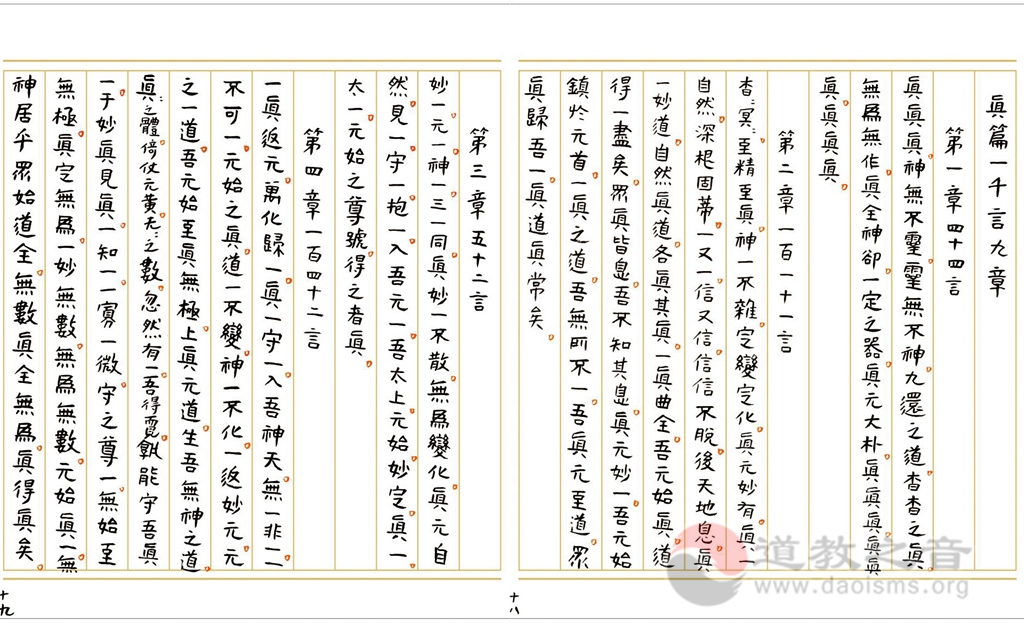 眞篇一千言九章
第一章四十四言
眞眞眞神無不靈靈無不神九還之道杳杳之眞
無爲無作眞全神卻一定之器眞元大朴眞眞眞眞眞
眞眞眞眞
第二章一百一十一言
杳〻冥〻至精至眞神一不雜定變定化眞元妙有眞一
自然深根固蒂一又一信又信信信不脫後天地息眞
一妙道自然眞道各眞其眞一眞曲全吾元始眞道
得一盡矣眾眞皆息吾不知其息眞元妙一吾元始
鎮於元首一眞之道吾無所不一吾眞元至道眾
眞歸吾一眞道眞常矣
第三章五十二言
妙一元一神一三一同眞妙一不散無爲變化眞元自
然見一守一抱一入吾元一吾太上元始妙定眞一
太一元始之尊號得之者眞
第四章一百四十二言
一眞返元萬化歸一眞一守一入吾神天無一非二
不可一元始之眞道一不變神一不化一返妙元元
之一道吾元始至眞無極上眞元道生吾無神之道
眞〻之體倚仗元黃无〻之數忽然有一吾得霓氈能守吾眞
一于妙眞見眞一知一一寡一微守之尊一無始至
無極眞定無爲一妙無數無爲無數元始眞一無
神居乎眾始道全無數眞全無爲眞得眞矣
十八
十九
道教之音
www.daoisms.org